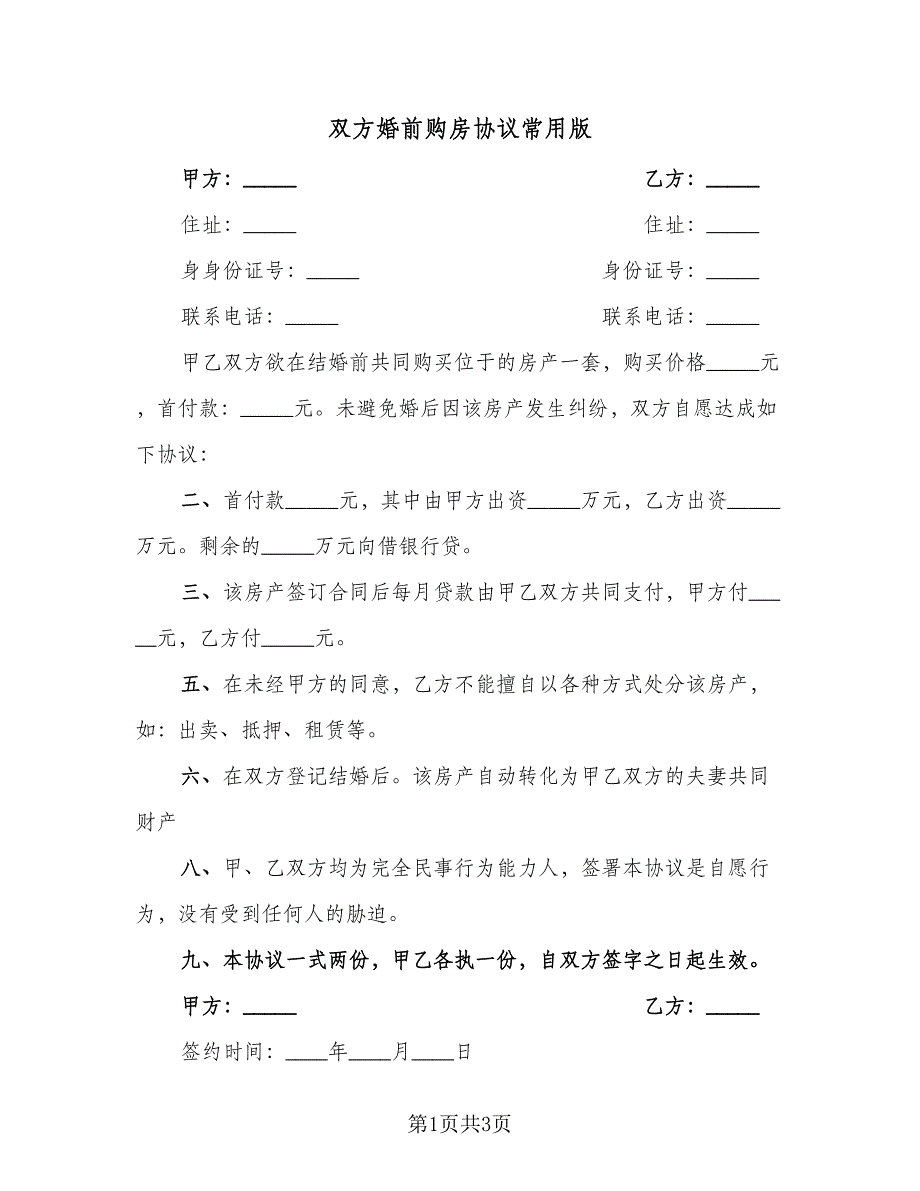 双方婚前购房协议常用版
甲方：_____ 乙方：_____
住址：_____ 住址：_____
身身份证号：_____ 身份证号：_____
联系电话：_____ 联系电话：_____
甲乙双方欲在结婚前共同购买位于的房产一套，购买价格_____元
，首付款：_____元。未避免婚后因该房产发生纠纷，双方自愿达成如
下协议：
二、首付款_____元，其中由甲方出资_____万元，乙方出资_____
万元。剩余的_____万元向借银行贷。
三、该房产签订合同后每月贷款由甲乙双方共同支付，甲方付___
__元，乙方付_____元。
五、在未经甲方的同意，乙方不能擅自以各种方式处分该房产，
如：出卖、抵押、租赁等。
六、在双方登记结婚后。该房产自动转化为甲乙双方的夫妻共同
财产
八、甲、乙双方均为完全民事行为能力人，签署本协议是自愿行
为，没有受到任何人的胁迫。
九、本协议一式两份，甲乙各执一份，自双方签字之日起生效。
甲方：_____ 乙方：_____
签约时间：____年____月____日
第1页共3页